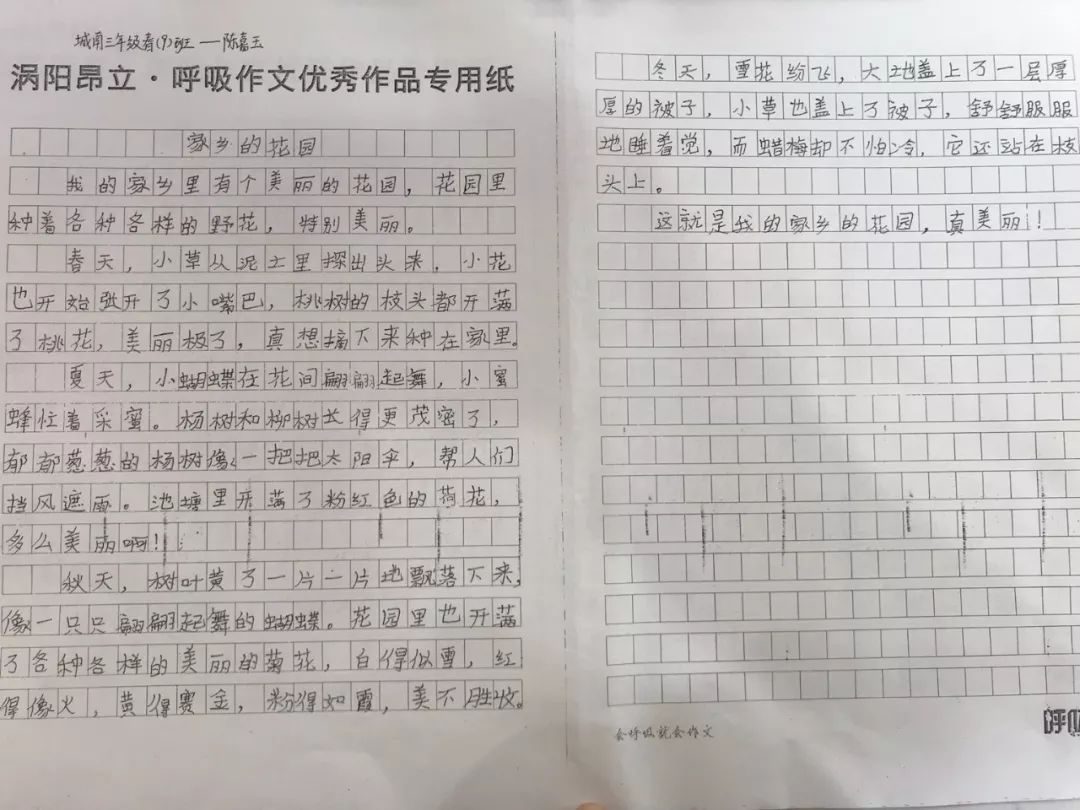 城南三年级春(9)班——陈嘉玉
涡阳昂立·呼吸作文优秀作品专用纸
家乡的花园
我的家乡里有个美丽的花园，花园里
种着各种各样的野花，特别美丽。
春天，小草从泥土里探出头来，小花
也开始张开了小嘴巴，桃树的枝头都开满
了桃花，美丽极了，真想摘下来种在家里。
夏天，小蝴蝶在花间翩翩起舞，小蜜
蜂忙着采蜜。杨树和柳树长得更茂密了，
郁郁葱葱的杨树像一把把太阳伞，帮人们
挡风遮雨。池塘里开满了粉红色的荷花，
多么美丽啊！
秋天，树叶黄了一片一片地飘落下来，
像一只只翩翩起舞的蝴蝶。花园里也开满
了各种各样的美丽的菊花，白得似雪，红
得像火，黄得赛金，粉得如霞，美不胜收。
冬天，雪花纷飞，大地盖上了一层厚
厚的被子，小草也盖上了被子，舒舒服服
地睡着觉，而蜡梅却不怕冷，它还站在枝
头上。
这就是我的家乡的花园，真美丽！
会呼吸就会作文
呼吸